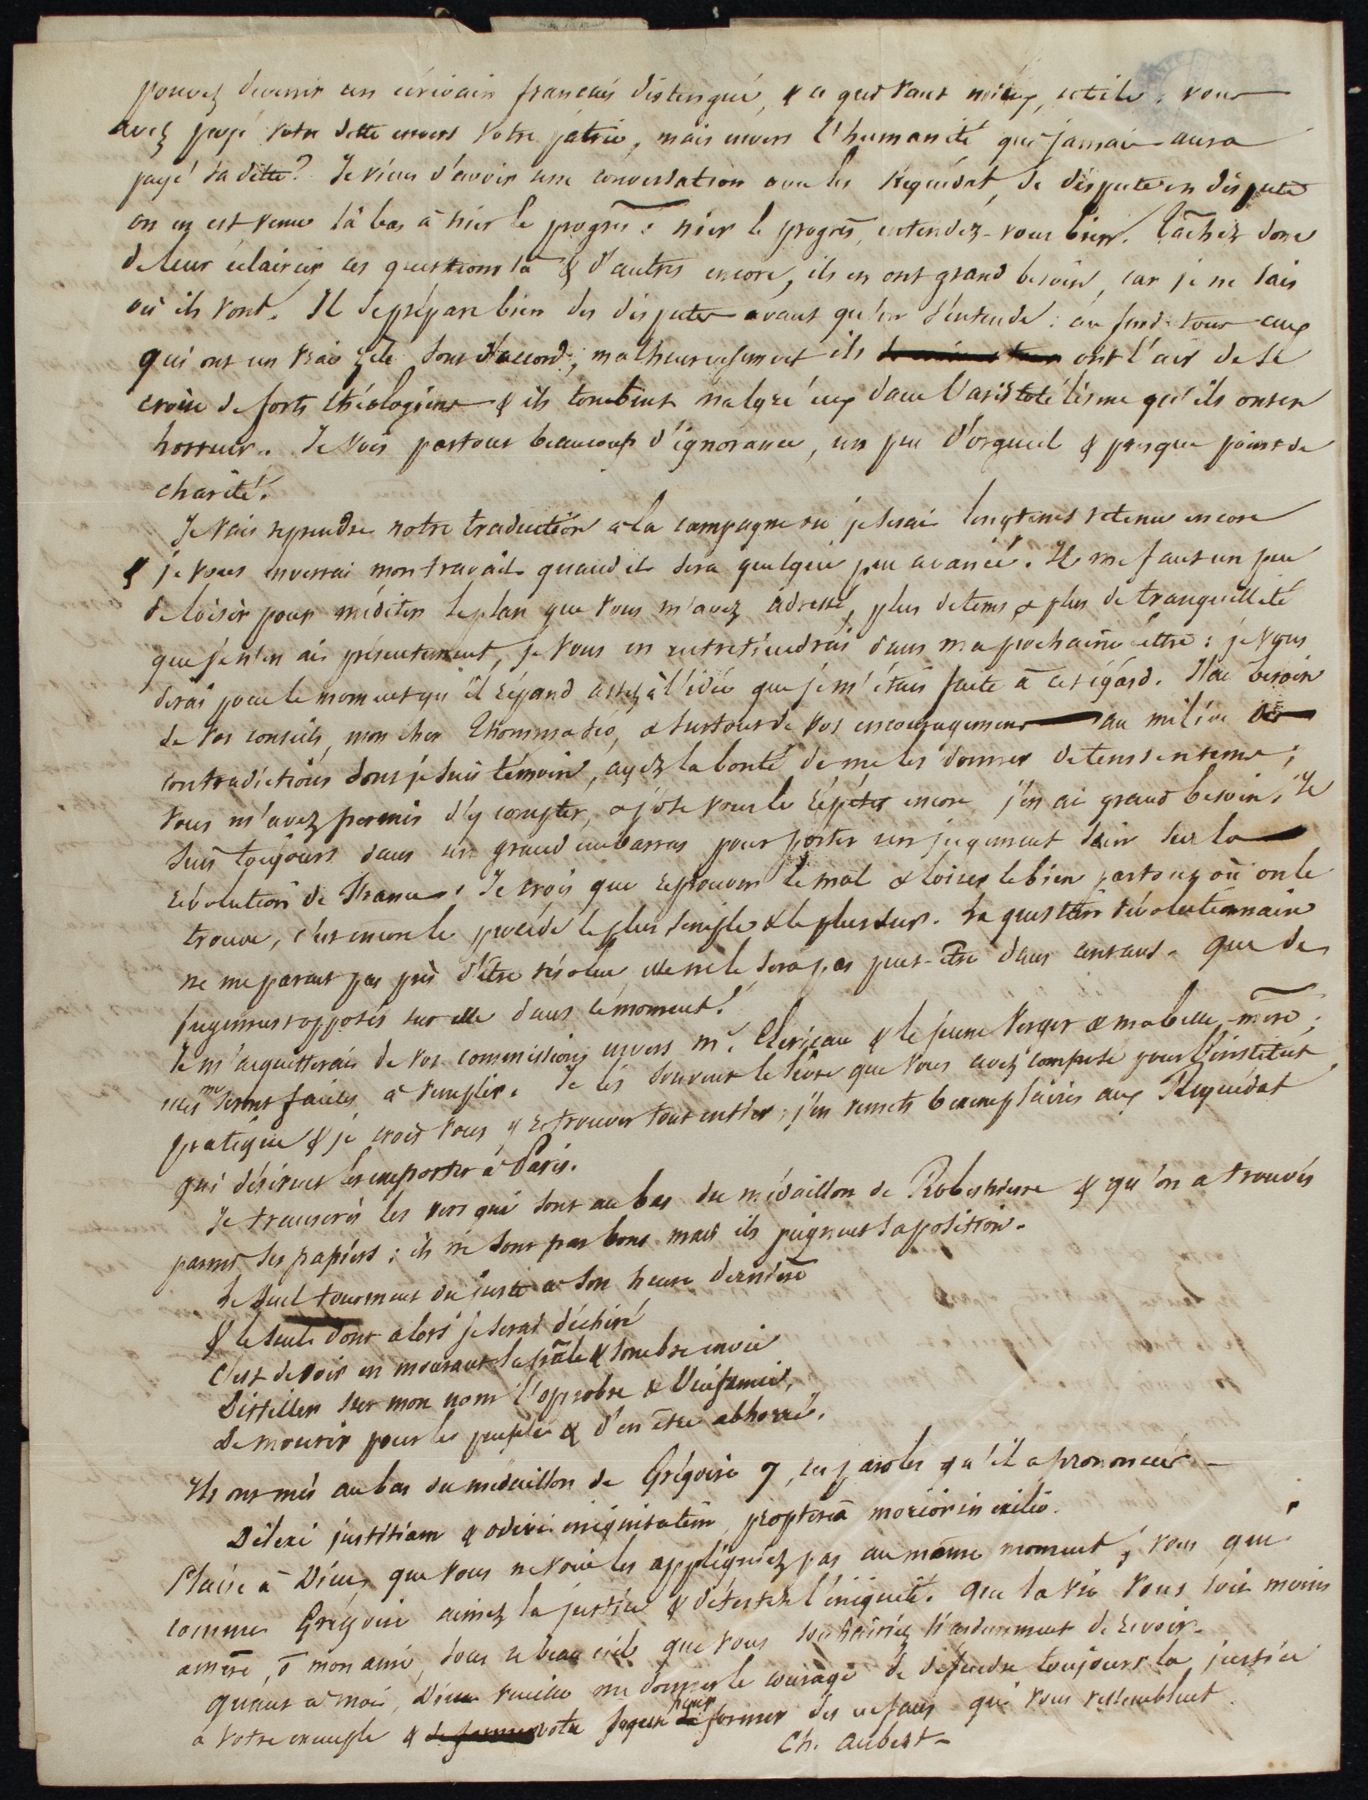 pouvez devenir un écrivain français distingué, & ce qui vaut mieux, utile. vous
avez payé votre dette envers votre patrie, mais envers l'humanité qui jamais aura
payé sa dette? Je viens d'avoir une conversation avec les Requédat, de dispute en dispute
on en est venu là bas à nier le progrès: nier le progrès, entendez-vous bien. Tâchez donc
de leur éclaircir ces questions là & d'autres encore, ils en ont grand besoin, car je ne sais
où ils vont. Il se prépare bien des disputes avant qu'on s'entende: au fond tous ceux
qui ont un vrai zèle sont d'accord; malheureusement ils ont l'air de se
croire de forts théologiens & ils tombent malgré eux dans l'aristotélisme qu'ils ont en
horreur. Je vois partout beaucoup d'ignorance, un peu d'orgueil & presque point de
charité.
Je vais reprendre notre traduction à la campagne où je serai longtems retenu encore
& je vous enverrai mon travail quand il sera quelque peu avancé. Il me faut un peu
de loisir pour méditer le plan que vous m'avez adressé, plus de tems & plus de tranquillité
que je n'en ai présentement, je vous en entretiendrai dans ma prochaine lettre: je vous
dirai pour le moment qu'il répond assez à l'idée que je m'étais faite à cet égard. J'ai besoin
de vos conseils, mon cher Thommaseo, & surtout de vos encouragemens au milieu des
contradictions dont je suis témoin, ayez la bonté de me les donner de tems en tems;
vous m'avez permis d'y compter, & j'ose vous le répéter encore j'en ai grand besoin. Je
suis toujours dans un grand embarras pour porter un jugement sain sur la
révolution de France. Je crois que réprouver le mal & louer le bien partout où on le
trouve, c'est encore le procédé le plus simple & le plus sur. La question révolutionnaire
ne me parait pas près d'être résolue elle ne le sera pas peut-être dans cent ans. que de
jugemens opposés sur elle dans le moment!
Je m'acquitterai de vos commissions envers mr. Clericeau & le jeune Verger & ma belle-mère;
elles me seront faciles à remplir. Je lis souvent le livre que vous avez composé pour l'institut
pratique & je crois vous y retrouver tout entier; j'en remets 6 exemplaires aux Requédat
qui désirent les emporter à Paris.
Je transcris les vers qui sont au bas du médaillon de Robespierre & qu'on a trouvés
parmi ses papiers: ils ne sont pas bons mais ils peignent sa position.
Le seul tourment du juste à son heure dernière
& le seul dont alors je serai déchiré
C'est de voir en mourant la pâle & sombre envie
Distiller sur mon nom l'opprobre & l'infamie,
De mourir pour le peuple & d'en être abhorré.
Ils ont mis au bas du médaillon de Grégoire 7, les paroles qu'il a prononcées —
Dilexi justitiam & odivi iniquitatem, propterea morior in exilio.
Plaise à Dieu, que vous ne vous les appliquiez pas au même moment, vous qui
comme Grégoire aimez la justice & détestez l'iniquité. que la vie vous soit moins
amère, ô mon ami, sous ce beau ciel que vous souhaitiez si ardemment de revoir.
quant à moi, Dieu veuille me donner le courage de défendre toujours la justice
à votre exemple & votre sagesse pour former des enfans qui vous ressemblent.
Ch. Aubert